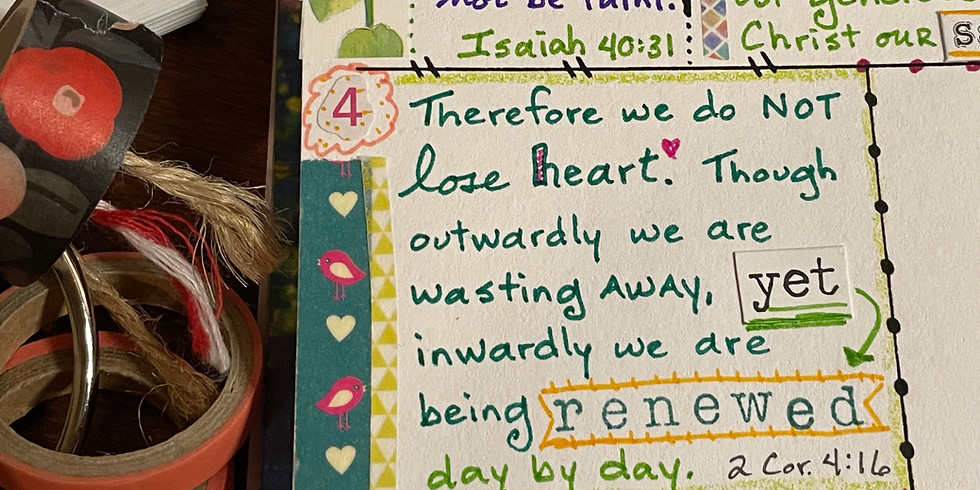 not be faint.
Isaiah 40:31
Christ our
4
Therefore we do NOT
lose heart. Though
outwardly we are
wasting AWAY, yet
inwardly we are
being renewed
day by day. 2 Cor. 4:16